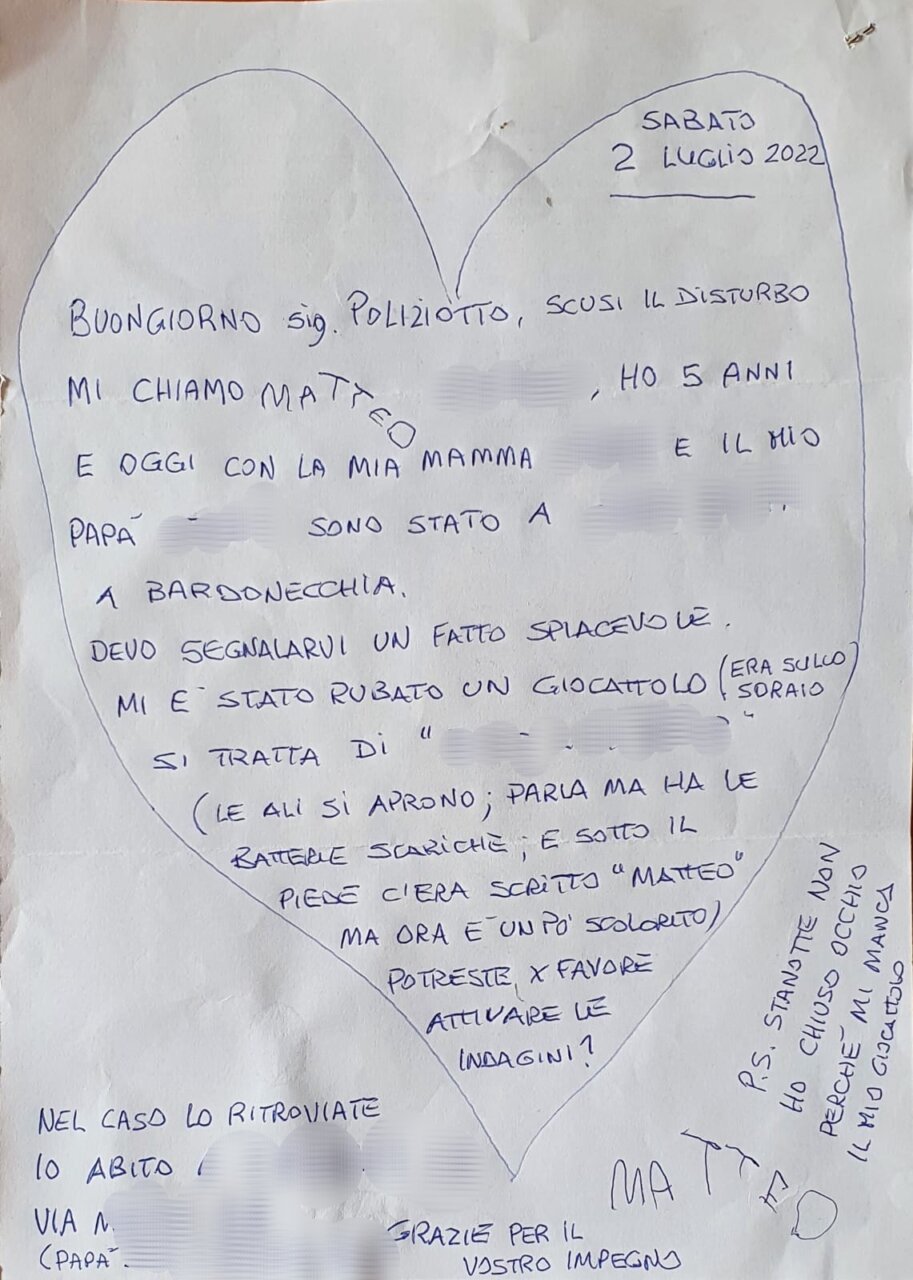 SABATO
2 LUGLIO 2022
BUONGIORNO sig. POLIZIOTTO, SCUSI IL DISTURBO
MI CHIAMO MATTEO , HO 5 ANNI
E OGGI CON LA MIA MAMMA E IL MIO
PAPA' SONO STATO A
A BARDONECCHIA.
DEVO SEGNALARVI UN FATTO SPIACEVOLE.
MI E' STATO RUBATO UN GIOCATTOLO (ERA SULLO
SDRAIO
SI TRATTA DI " "
(LE ALI SI APRONO; PARLA MA HA LE
BATTERIE SCARICHE; E SOTTO IL
PIEDE C'ERA SCRITTO "MATTEO"
MA ORA E' UN PO' SCOLORITO)
POTRESTE, X FAVORE
ATTIVARE LE
INDAGINI?
NEL CASO LO RITROVIATE
IO ABITO
VIA N.
(PAPA'.
GRAZIE PER IL
VOSTRO IMPEGNO
MATTEO
P.S. STANOTTE NON
HO CHIUSO OCCHIO
PERCHE' MI MANCA
IL MIO GIOCATTOLO